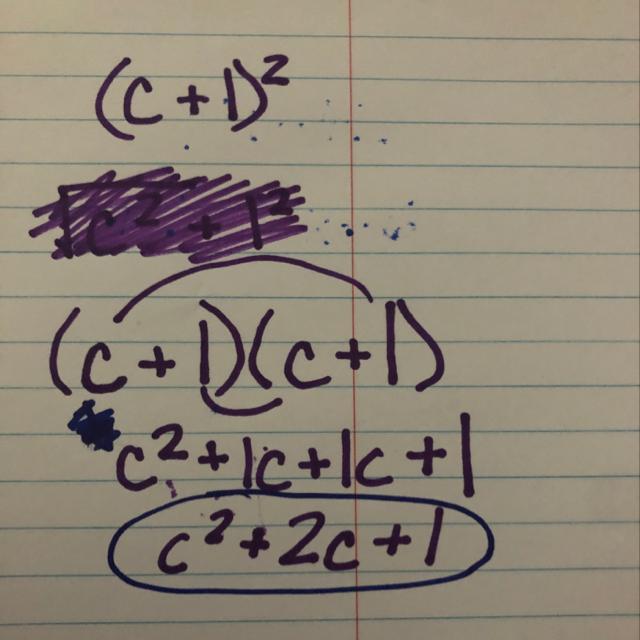 (c + 1)²
c² + 1²
(c + 1)(c + 1)
c² + 1c + 1c + 1
c² + 2c + 1